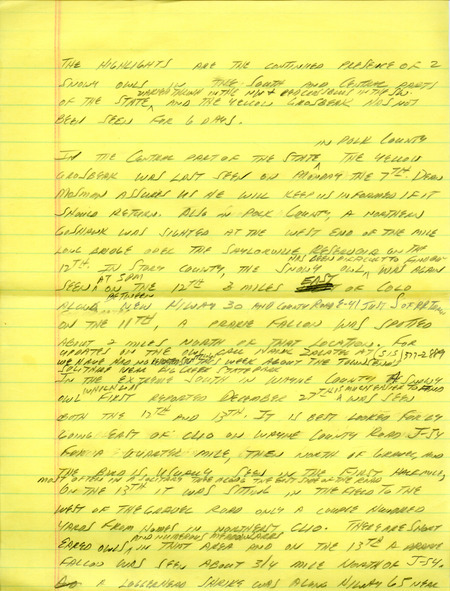 THE HIGHLIGHTS ARE THE CONTINUED PRESENCE OF 2
SNOWY OWLS IN THE SOUTH AND CENTRAL PARTS
VARIED THRUSH IN THE NW & RED CROSSBILLS IN THE SW.
OF THE STATE, AND THE YELLOW GROSBEAK HAS NOT
BEEN SEEN FOR 6 DAYS.
IN POLK COUNTY
IN THE CENTRAL PART OF THE STATE, THE YELLOW
GROSBEAK WAS LAST SEEN ON MONDAY THE 7TH. DEAN
MOSMAN ASSURES US HE WILL KEEP US INFORMED IF IT
SHOULD RETURN. ALSO IN POLK COUNTY, A NORTHERN
GOSHAWK WAS SIGHTED AT THE WEST END OF THE MILE
LONG BRIDGE OVER THE SAYLORVILLE RESERVOIR ON THE
HAS BEEN DIFFICULT TO FIND BUT
12TH. IN STORY COUNTY, THE SNOWY OWL WAS AGAIN
AT 5PM
SEEN ON THE 12TH 3 MILES EAST OF COLO
BETWEEN
ALONG NEW HIWAY 30 AND COUNTY ROAD E-41 JUST S OF RR TRACKS
ON THE 11TH, A PRAIRIE FALCON WAS SPOTTED
ABOUT 2 MILES NORTH OF THAT LOCATION. FOR
UPDATES ON THE OWL CALL HANK ZALETEL AT (515) 377-2889
WE HAVE HAD NO THIS WEEK ABOUT THE TOWNSENDS
SOLITAIRE NEAR BIG CREEK STATE PARK
IN THE EXTREME SOUTH IN WAYNE COUNTY, A SNOWY
WHICH WAS IS MUCH EASIER TO FIND
OWL FIRST REPORTED DECEMBER 27TH WAS SEEN
BOTH THE 12TH AND 13TH. IT IS BEST LOOKED FOR BY
GOING EAST OF CLIO ON WAYNE COUNTY ROAD J-54
FOR A QUARTER MILE, THEN NORTH OF GRAVEL, AND
THE BIRD IS USUALLY SEEN IN THE FIRST HALF MILE,
MOST OFTEN IN A SOLITARY TREE ALONG THE EAST SIDE OF THE ROAD
ON THE 13TH IT WAS SITTING IN THE FIELD TO THE
WEST OF THE GRAVEL ROAD ONLY A COUPLE HUNDRED
YARDS FROM HOMES IN NORTHEAST CLIO. THERE ARE SHORT
AND NUMEROUS MEADOWLARKS
EARED OWLS IN THAT AREA AND ON THE 13TH A PRAIRIE
FALCON WAS SEEN ABOUT 3/4 MILE NORTH OF J-54.
A LOGGERHEAD SHRIKE WAS ALONG HIWAY 65 NEAR